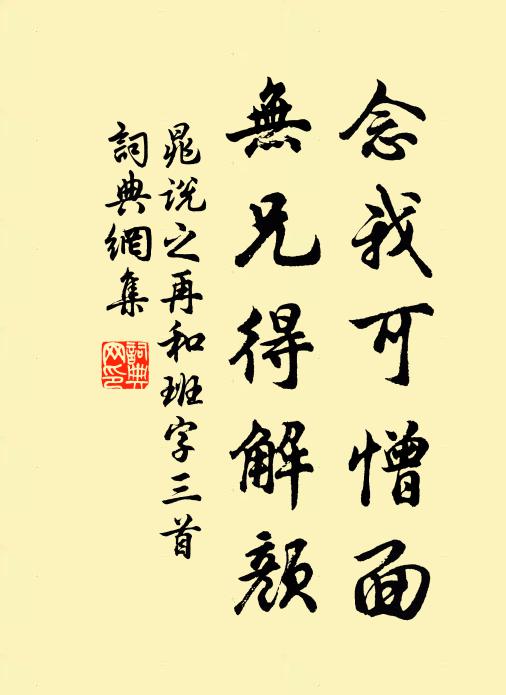 念我可憎面
無兄得解顏
晁说之再和班字三首
詞典網集
詞典網印